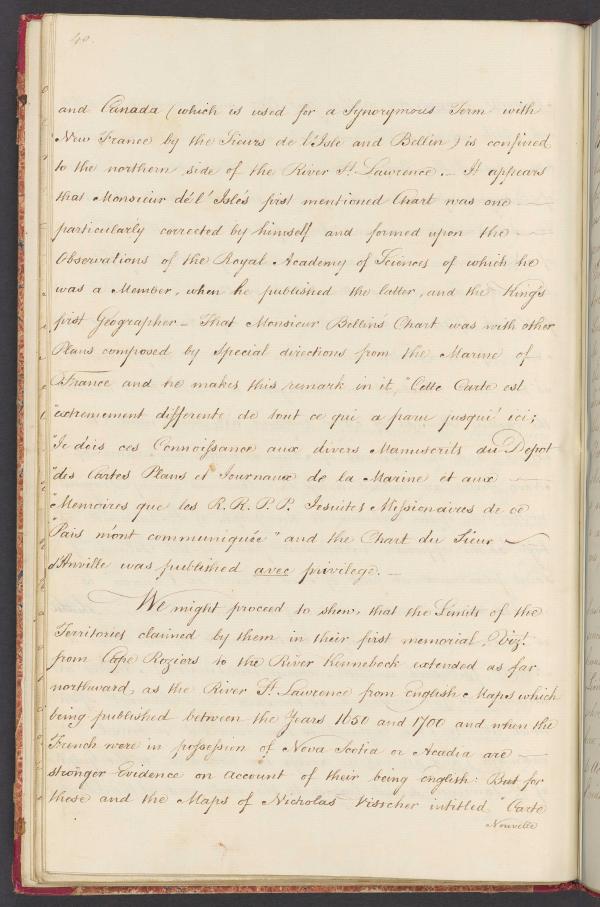 40.
and Canada (which is used for a Synonymous Term with
New France by the Sieurs de l'Isle and Bellin) is confined
to the northern side of the River St. Lawrence. - It appears
that Monsieur de l'Isle's first mentioned Chart was one
particularly corrected by himself and formed upon the
Observations of the Royal Academy of Sciences of which he
was a Member, when he published the latter, and the King's
first Geographer - That Monsieur Bellin's Chart was with other
Plans composed by Special directions from the Marine of
France and he makes this remark in it, "Cette Carte est
"extremement differente de tout ce qui a paru jusqu' ici;
"Je dois ces Connoissance aux divers Manuscrits du Depot
"des Cartes Plans et Journaux de la Marine et aux
"Memoires que les R. R. P. P. Jesuites Missionaires de ce
"Pais m'ont communiquée" and the Chart du Sieur
d'Anville was published avec privilege. -
We might proceed to shew, that the Limits of the
Territories claimed by them in their first memorial, Vizt.
from Cape Roziers to the River Kennebeck extended as far
northward, as the River St. Lawrence from English Maps which
being published between the Years 1650 and 1700 and when the
French were in possession of Nova Scotia or Acadia are
stronger Evidence on account of their being english: But for
these and the Maps of Nicholas Visscher intitled "Carte
Nouvelle